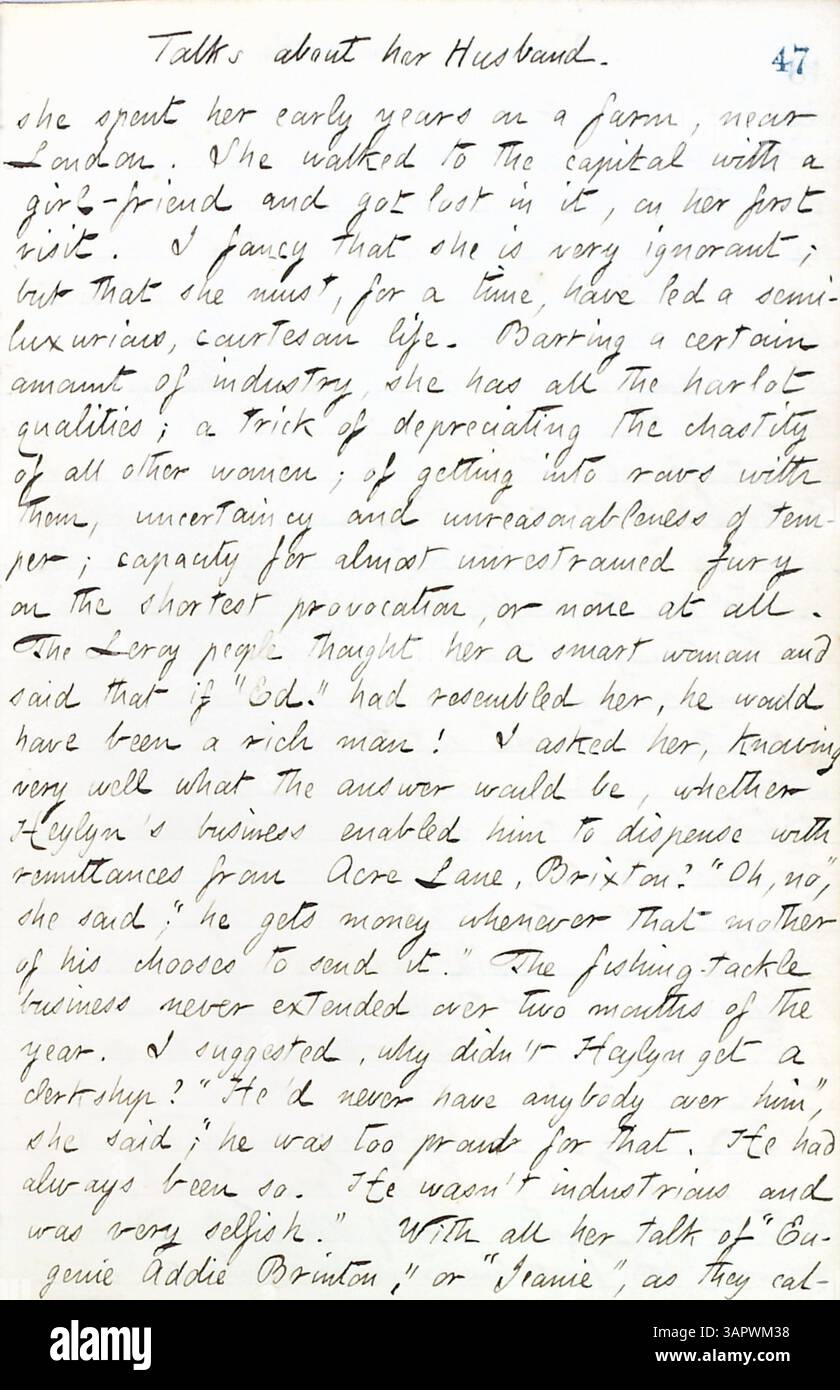 Talks about her Husband.
47
she spent her early years on a farm, near
London. She walked to the capital with a
girl-friend and got lost in it, on her first
visit. I fancy that she is very ignorant;
but that she must, for a time, have led a semi-
luxurious, courtesan life. Barring a certain
amount of industry, she has all the harlot
qualities; a trick of depreciating the chastity
of all other women; of getting into rows with
them, uncertaincy and unreasonableness of tem-
per; capacity for almost unrestrained fury
on the shortest provocation, or none at all.
The Leroy people thought her a smart woman and
said that if "Ed." had resembled her, he would
have been a rich man! I asked her, knowing
very well what the answer would be, whether
Heylyn's business enabled him to dispense with
remittances from Acre Lane, Brixton? "Oh, no",
she said; "he gets money whenever that mother
of his chooses to send it." The fishing-tackle
business never extended over two months of the
year. I suggested, why didn't Heylyn get a
clerkship? "He'd never have anybody over him",
she said; "he was too proud for that. He had
always been so. He wasn't industrious and
was very selfish." With all her talk of "Eu-
genie Addie Brinton," or "Jeanie", as they cal-
alamy
Image ID: 3APWM38
www.alamy.com